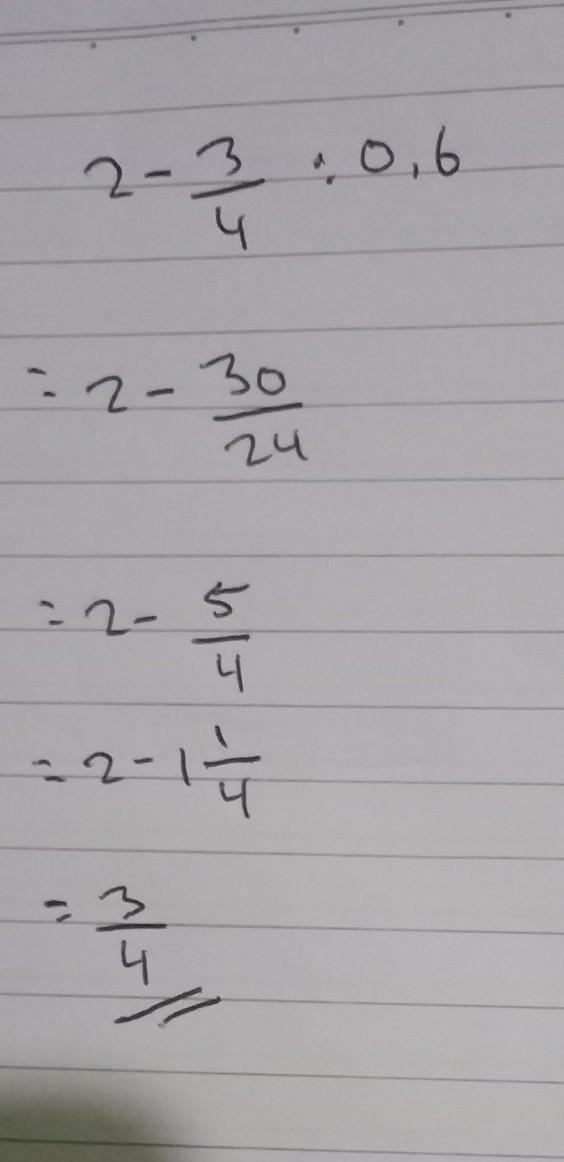 2 - 3/4 : 0,6
= 2 - 30/24
= 2 - 5/4
= 2 - 1 1/4
= 3/4